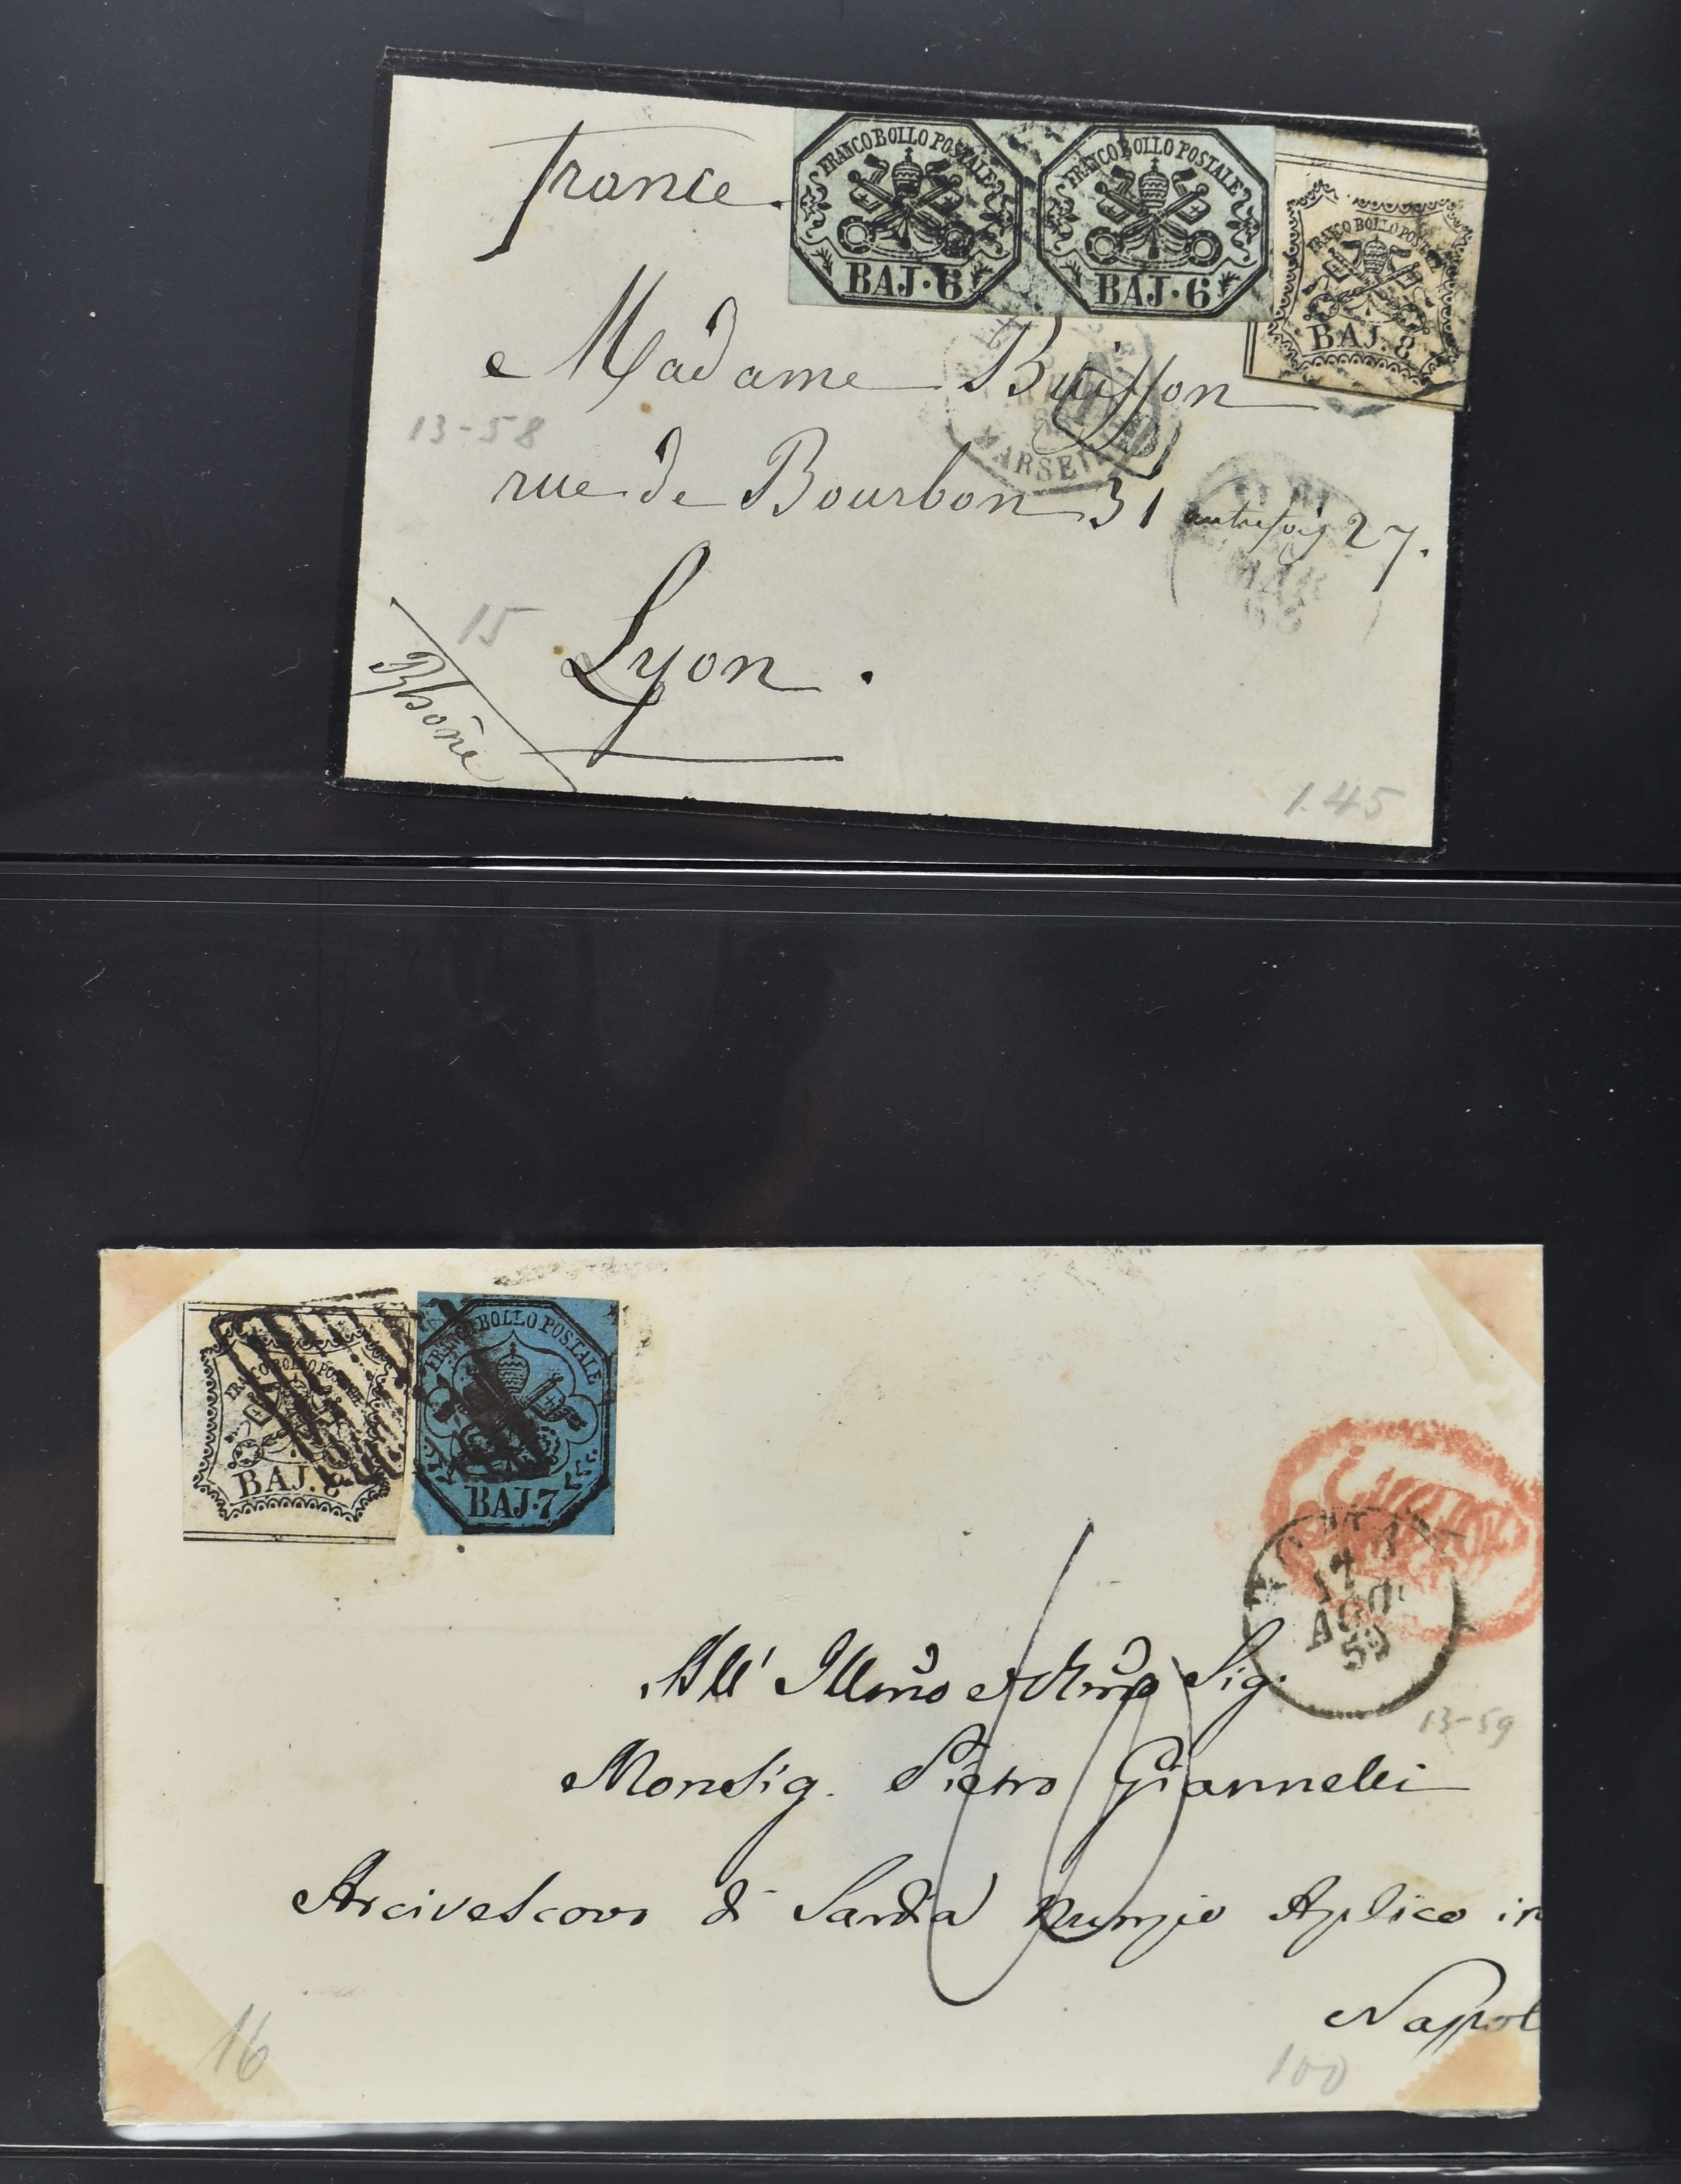 France.
FRANCO BOLLO POSTALE
BAJ·6
FRANCO BOLLO POSTALE
BAJ·6
FRANCO BOLLO POSTALE
BAJ. 8
Madame Buisson
13-58
MARSEI
rue de Bourbon 31 autrefois 27.
MAR
15
Lyon.
Rhône
1.45
FRANCO BOLLO POSTALE
BAJ. 8
FRANCO BOLLO POSTALE
BAJ·7
17
AGO
59
All' Illmo e Rmo Sig.
13-59
Monsig. Pietro Giannelli
Arcivescovo di Sardia Nunzio Aplico in
Napol
16
100